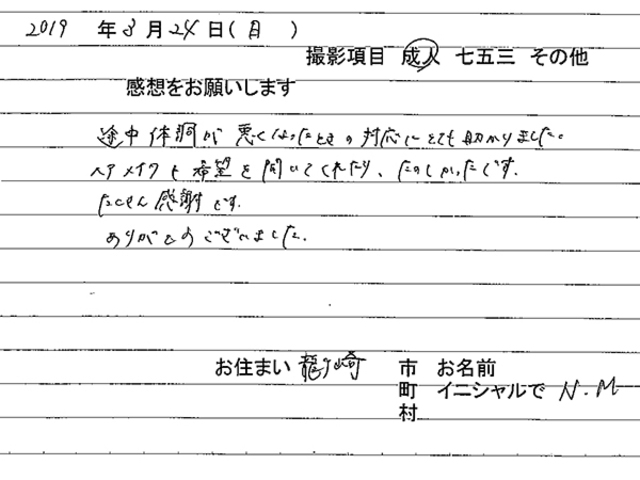 2019 年 3 月 24 日( 日 )
撮影項目 成人 七五三 その他
感想をお願いします
途中体調が悪くなったときの対応にとても助かりました。
ヘアメイクも希望を聞いてくれたり、たのしかったです.
たくさん感謝です.
ありがとうございました.
お住まい 龍ヶ崎 市 お名前
町 イニシャルで N.M
村